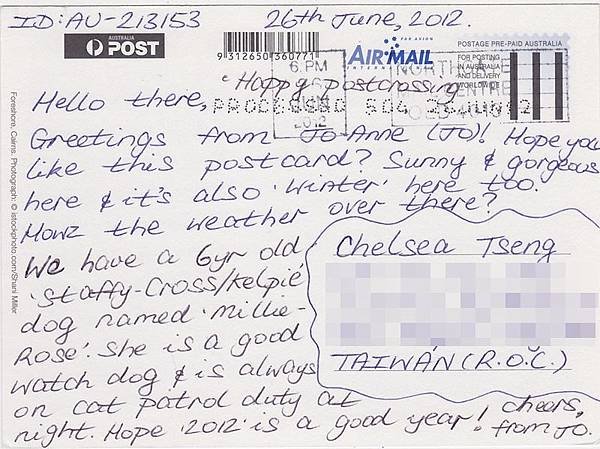 ID: AU-213153
26th June, 2012.
AUSTRALIA
POST
9 312650 360771
PAR AVION
AIR MAIL
INTERNATIONAL
POSTAGE PRE-PAID AUSTRALIA
FOR POSTING
IN AUSTRALIA
AND DELIVERY
WORLDWIDE
6 PM
2012
Happy postcrossing
Hello there,
Greetings from Jo-Anne (Jo)! Hope you
like this postcard? Sunny & gorgeous
here & it's also 'winter' here too.
Howz the weather over there?
We have a 6yr old
'Staffy-Cross/Kelpie
dog named 'Millie-
Rose'. She is a good
watch dog & is always
on cat patrol duty at
night. Hope '2012' is a good year! cheers,
from Jo.
Chelsea Tseng
TAIWAN (R.O.C.)
Foreshore, Cairns. Photograph: © istockphoto.com/Shani Miller